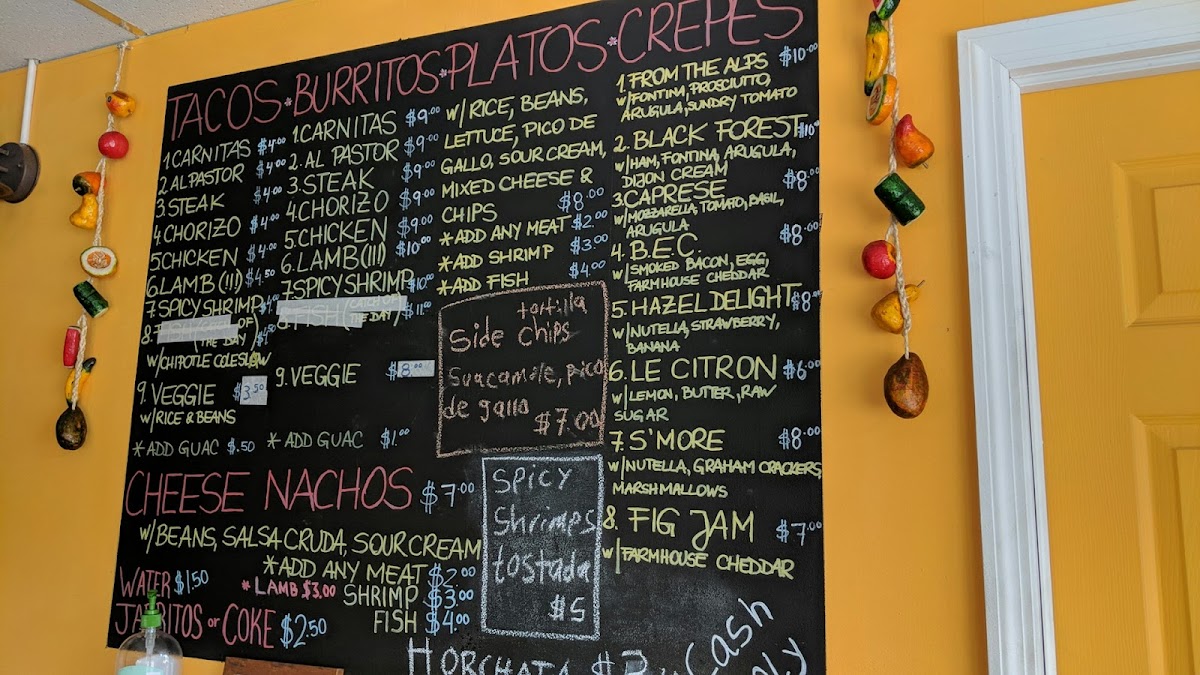 TACOS * BURRITOS * PLATOS * CREPES
1 CARNITAS $4.00
2 AL PASTOR $4.00
3. STEAK $4.00
4. CHORIZO $4.00
5 CHICKEN $4.00
6. LAMB (!!!) $4.50
7 SPICY SHRIMP
8.
THE DAY)
W/CHIPOTLE COLESLAW
9. VEGGIE $3.50
W/RICE & BEANS
* ADD GUAC $.50
1. CARNITAS $9.00
2. AL PASTOR $9.00
3. STEAK $9.00
4 CHORIZO $9.00
5 CHICKEN $9.00
6. LAMB (!!!) $10.00
7 SPICY SHRIMP $10.00
8. FISH (CATCH OF THE DAY) $11.00
9. VEGGIE $8.00
* ADD GUAC $1.00
W/ RICE, BEANS,
LETTUCE, PICO DE
GALLO, SOUR CREAM,
MIXED CHEESE &
CHIPS $8.00
* ADD ANY MEAT $2.00
* ADD SHRIMP $3.00
* ADD FISH $4.00
tortilla
Side chips
Guacamole, pico
de gallo
$7.00
Spicy
Shrimps
tostada
$5
1. FROM THE ALPS $10.00
W/FONTINA, PROSCIUTTO,
ARUGULA, SUNDRY TOMATO
2. BLACK FOREST $10.00
W/HAM, FONTINA, ARUGULA,
DIJON CREAM
3. CAPRESE $8.00
W/MOZZARELLA, TOMATO, BASIL,
ARUGULA
4. B.E.C. $8.00
W/SMOKED BACON, EGG,
FARMHOUSE CHEDDAR
5. HAZEL DELIGHT $8.00
W/NUTELLA, STRAWBERRY,
BANANA
6. LE CITRON $6.00
W/LEMON, BUTTER, RAW
SUGAR
7. S'MORE $8.00
W/NUTELLA, GRAHAM CRACKERS,
MARSHMALLOWS
8. FIG JAM $7.00
W/FARMHOUSE CHEDDAR
CHEESE NACHOS $7.00
W/BEANS, SALSA CRUDA, SOUR CREAM
* ADD ANY MEAT $2.00
* LAMB $3.00 SHRIMP $3.00
FISH $4.00
WATER $1.50
JARRITOS or COKE $2.50
HORCHATA
Cash